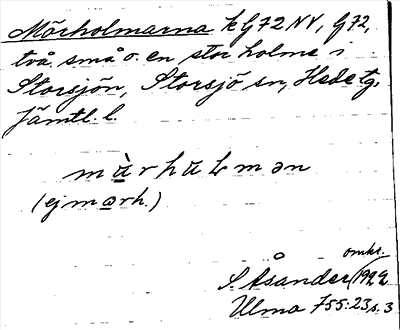 Mörholmarna k G72NV, G72,
två små o. en stor holme i
Storsjön, Storsjö sn, Hede tg,
Jämtl. l.
màrhɷLmən
(ej mɷrh.)
omkr.
S. Åsander 1922
Ulma 755:23 s. 3